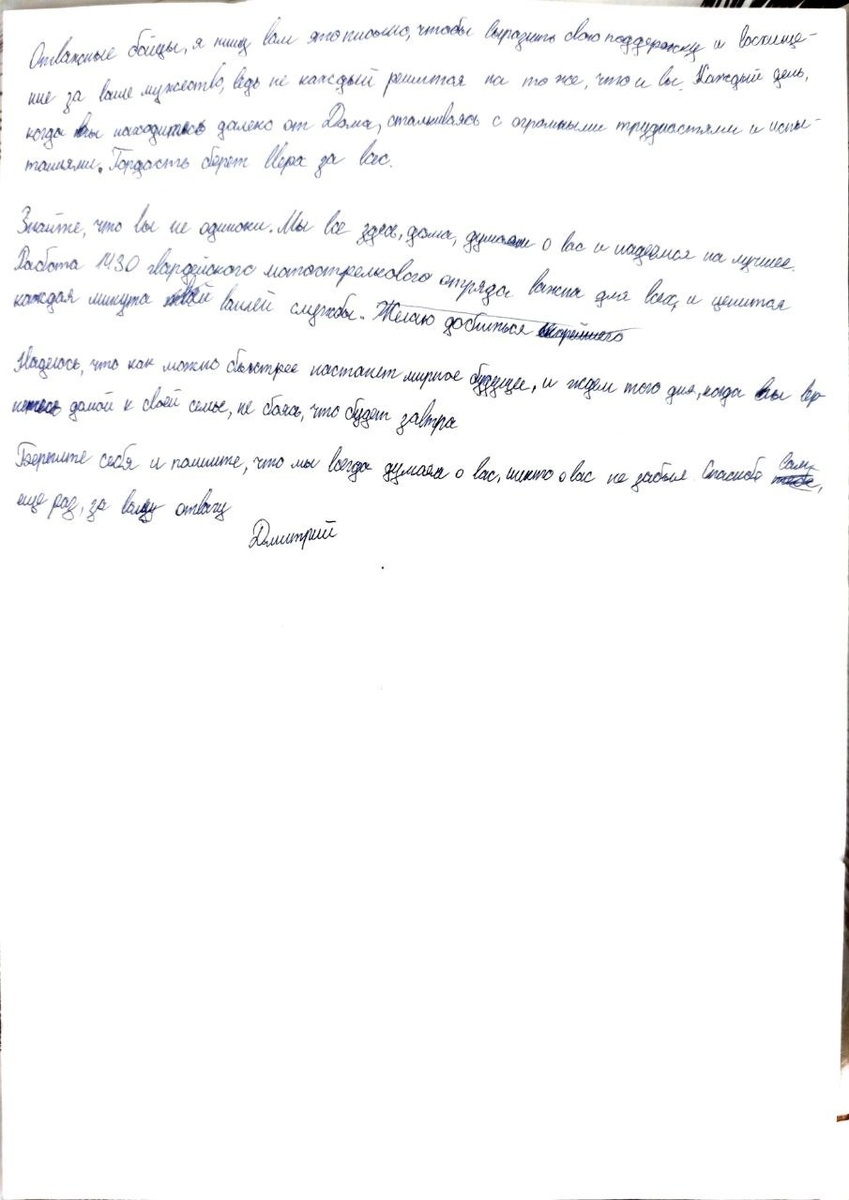 Отважные бойцы, я пишу вам это письмо, чтобы выразить свою поддержку и восхище-
ние за ваше мужество, ведь не каждый решится на то же, что и вы. Каждый день,
когда вы находитесь далеко от Дома, сталкиваясь с огромными трудностями и испы-
таниями. Гордость берет вверх за вас.
Знайте, что вы не одиноки. Мы все здесь, дома, думаем о вас и надеемся на лучшее.
Работа 1430 гвардейского мотострелкового отряда важна для всех, и ценится
каждая минута вашей службы. Желаю добиться скорейшего
Надеюсь, что как можно быстрее настанет мирное будущее, и ждем того дня, когда вы вер-
нетесь домой к своей семье, не боясь, что будет завтра
Берегите себя и помните, что мы всегда думаем о вас, никто о вас не забыл. Спасибо вам,
еще раз, за вашу отвагу
Дмитрий